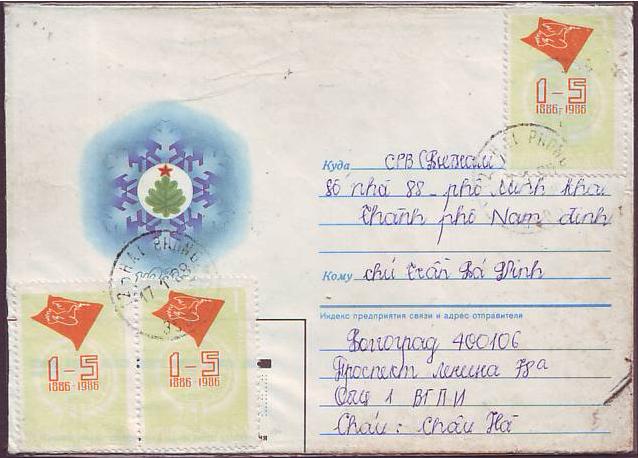 1-5
1886-1986
Куда СРВ (Вьетнам)
Số nhà 88 - phố Minh Khai
Thành phố Nam Định
Кому chú Trần Bá Đỉnh
Индекс предприятия связи и адрес отправителя
Волгоград 400106
Проспект Ленина 78а
Общ 1 ВГПИ
Cháu : Châu Hà
2 HAI PHONG
17.1.88
1-5
1886-1986
1-5
1886-1986